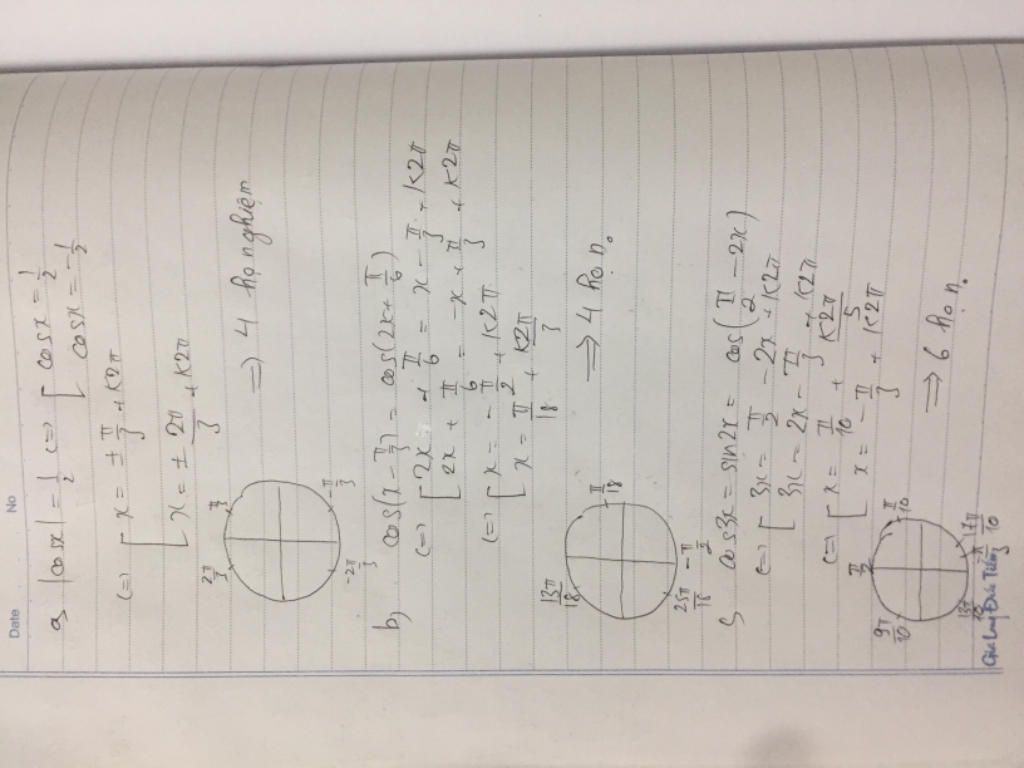 Date No
a) |cosx| = 1/2 (=) [ cosx = 1/2
cosx = -1/2
(=) [ x = ± π/3 + K2π
x = ± 2π/3 + K2π
=) 4 họ nghiệm
2π/3 π/3
-2π/3 -π/3
b) cos(x - π/3) = cos(2x + π/6)
(=) [ 2x + π/6 = x - π/3 + K2π
2x + π/6 = -x + π/3 + K2π
(=) [ x = -π/2 + K2π
x = π/18 + K2π/3
=> 4 họ n.
13π/18 π/18
25π/18 -π/2
cos3x = sin2x = cos(π/2 - 2x)
(=) [ 3x = π/2 - 2x + K2π
3x = 2x - π/3 + K2π
(=) [ x = π/10 + K2π/5
x = -π/3 + K2π
=> 6 họ n.
9π/10 π/2 π/10
13π/10 17π/10